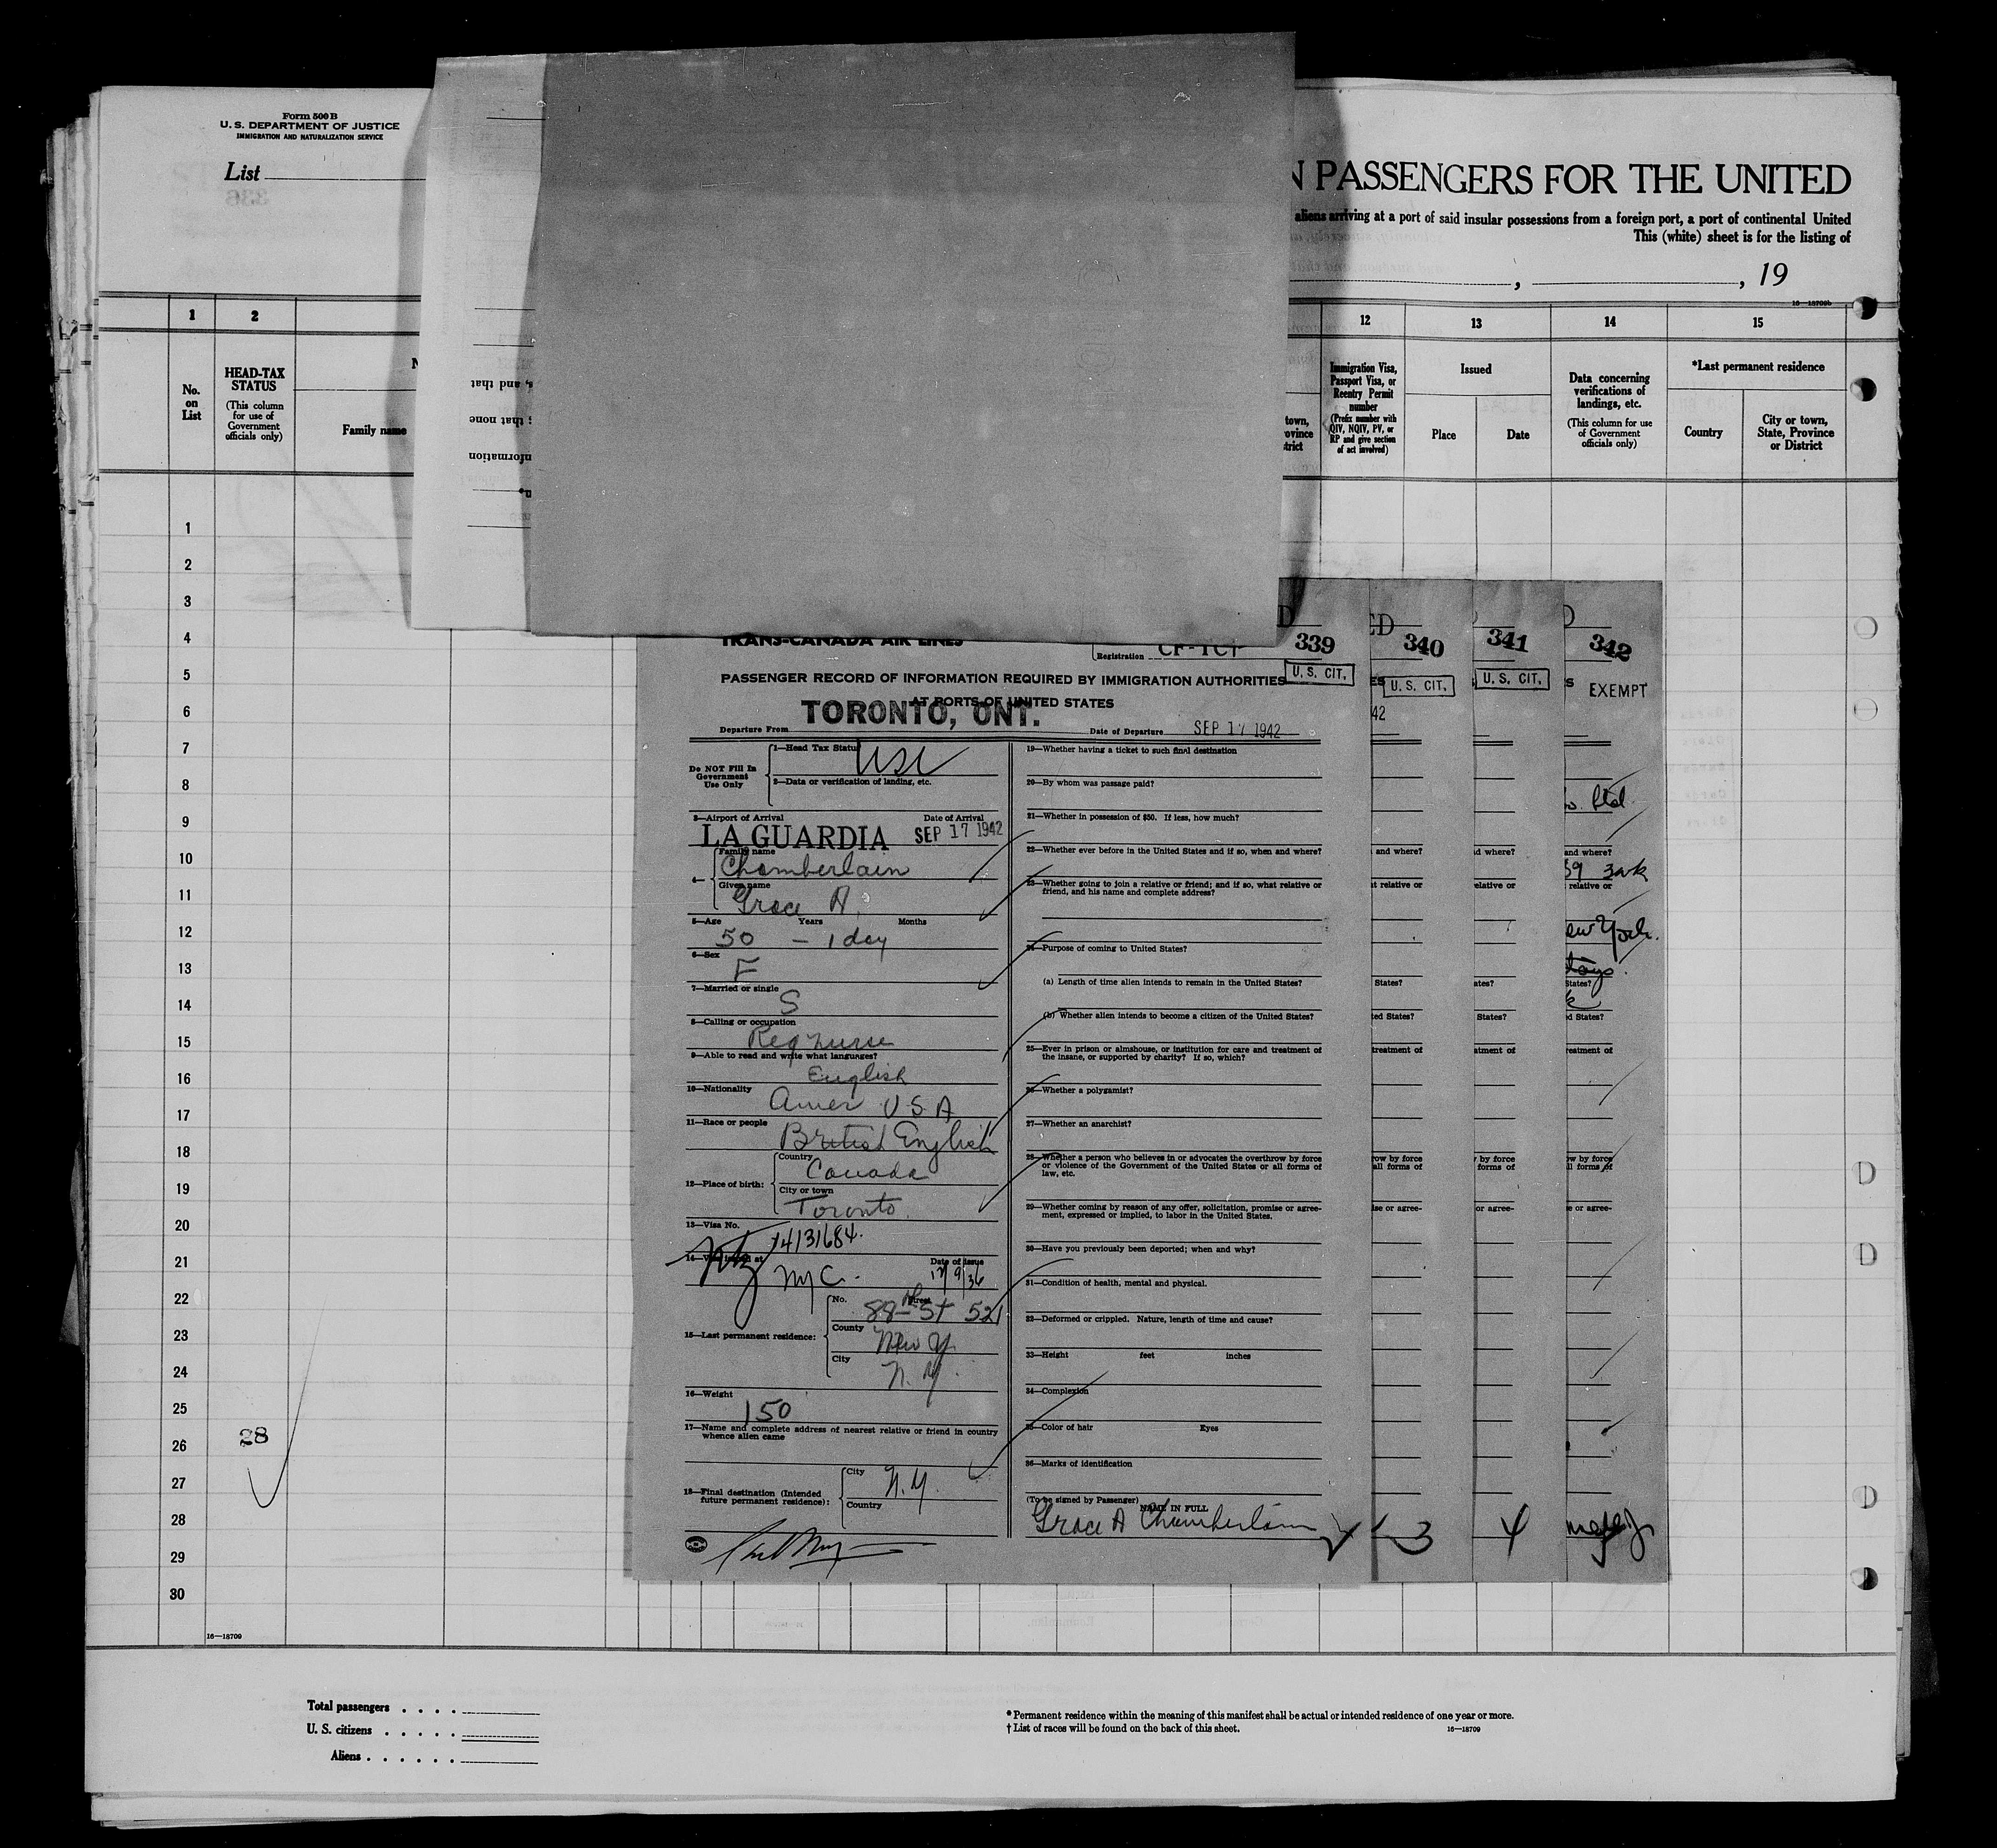 Form 500 B
U. S. DEPARTMENT OF JUSTICE
IMMIGRATION AND NATURALIZATION SERVICE
List
336
N PASSENGERS FOR THE UNITED
aliens arriving at a port of said insular possessions from a foreign port, a port of continental United
This (white) sheet is for the listing of
, , 19
16—18709b
1 2 12 13 14 15
No. on List
HEAD-TAX STATUS
(This column for use of Government officials only)
Family name
, and that
; that none
nformation
town,
ovince
trict
Immigration Visa, Passport Visa, or Reentry Permit number
(Prefix number with QIV, NQIV, PV, or RP and give section of act involved)
Issued
Place Date
Data concerning verifications of landings, etc.
(This column for use of Government officials only)
*Last permanent residence
Country
City or town, State, Province or District
1
2
3
4
5
6
7
8
9
10
11
12
13
14
15
16
17
18
19
20
21
22
23
24
25
26
27
28
29
30
28
16—18709
TRANS-CANADA AIR LINES
Registration CF-TCT
339
U. S. CIT.
PASSENGER RECORD OF INFORMATION REQUIRED BY IMMIGRATION AUTHORITIES
AT PORTS OF UNITED STATES
Departure From TORONTO, ONT.
Date of Departure SEP 17 1942
Do NOT Fill In
Government
Use Only
1—Head Tax Status USC
2—Data or verification of landing, etc.
3—Airport of Arrival Date of Arrival
LA GUARDIA SEP 17 1942
4— Family name
Chamberlain
Given name
Grace A.
5—Age Years Months
50 — 1 day
6—Sex
F
7—Married or single
S
8—Calling or occupation
Reg nurse
9—Able to read and write what languages?
English
10—Nationality
Amer USA
11—Race or people
British English
12—Place of birth: Country
Canada
City or town
Toronto
13—Visa No.
4131684.
14—Visa issued at Date of Issue
NYC.
15—Last permanent residence: No. Street
88th St 521
County
New Y.
City
N. Y.
16—Weight
150
17—Name and complete address of nearest relative or friend in country
whence alien came
18—Final destination (Intended
future permanent residence): City
N. Y.
Country
19—Whether having a ticket to such final destination
20—By whom was passage paid?
21—Whether in possession of $50. If less, how much?
22—Whether ever before in the United States and if so, when and where?
23—Whether going to join a relative or friend; and if so, what relative or
friend, and his name and complete address?
24—Purpose of coming to United States?
(a) Length of time alien intends to remain in the United States?
(b) Whether alien intends to become a citizen of the United States?
25—Ever in prison or almshouse, or institution for care and treatment of
the insane, or supported by charity? If so, which?
26—Whether a polygamist?
27—Whether an anarchist?
28—Whether a person who believes in or advocates the overthrow by force
or violence of the Government of the United States or all forms of
law, etc.
29—Whether coming by reason of any offer, solicitation, promise or agree-
ment, expressed or implied, to labor in the United States.
30—Have you previously been deported; when and why?
31—Condition of health, mental and physical.
32—Deformed or crippled. Nature, length of time and cause?
33—Height feet inches
34—Complexion
35—Color of hair Eyes
36—Marks of identification
(To be signed by Passenger)
NAME IN FULL
Grace A Chamberlain
ED
340
U. S. CIT.
42
and where?
t relative or
States?
ted States?
treatment of
row by force
all forms of
ise or agree-
3
341
U. S. CIT.
d where?
elative or
ates?
States?
atment of
by force
forms of
or agree-
4
342
EXEMPT
and where?
relative or
ew York.
days.
States?
d States?
eatment of
w by force
ll forms of
e or agree-
Total passengers . . . .
U. S. citizens . . . . .
Aliens . . . . . .
* Permanent residence within the meaning of this manifest shall be actual or intended residence of one year or more.
† List of races will be found on the back of this sheet.
16—18709